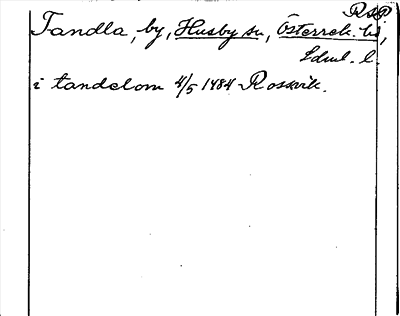 RSP
Tandla, by, Husby sn, Österrek. hd,
Sdml. l.
i tandelom 4/5 1484 Rossvik.